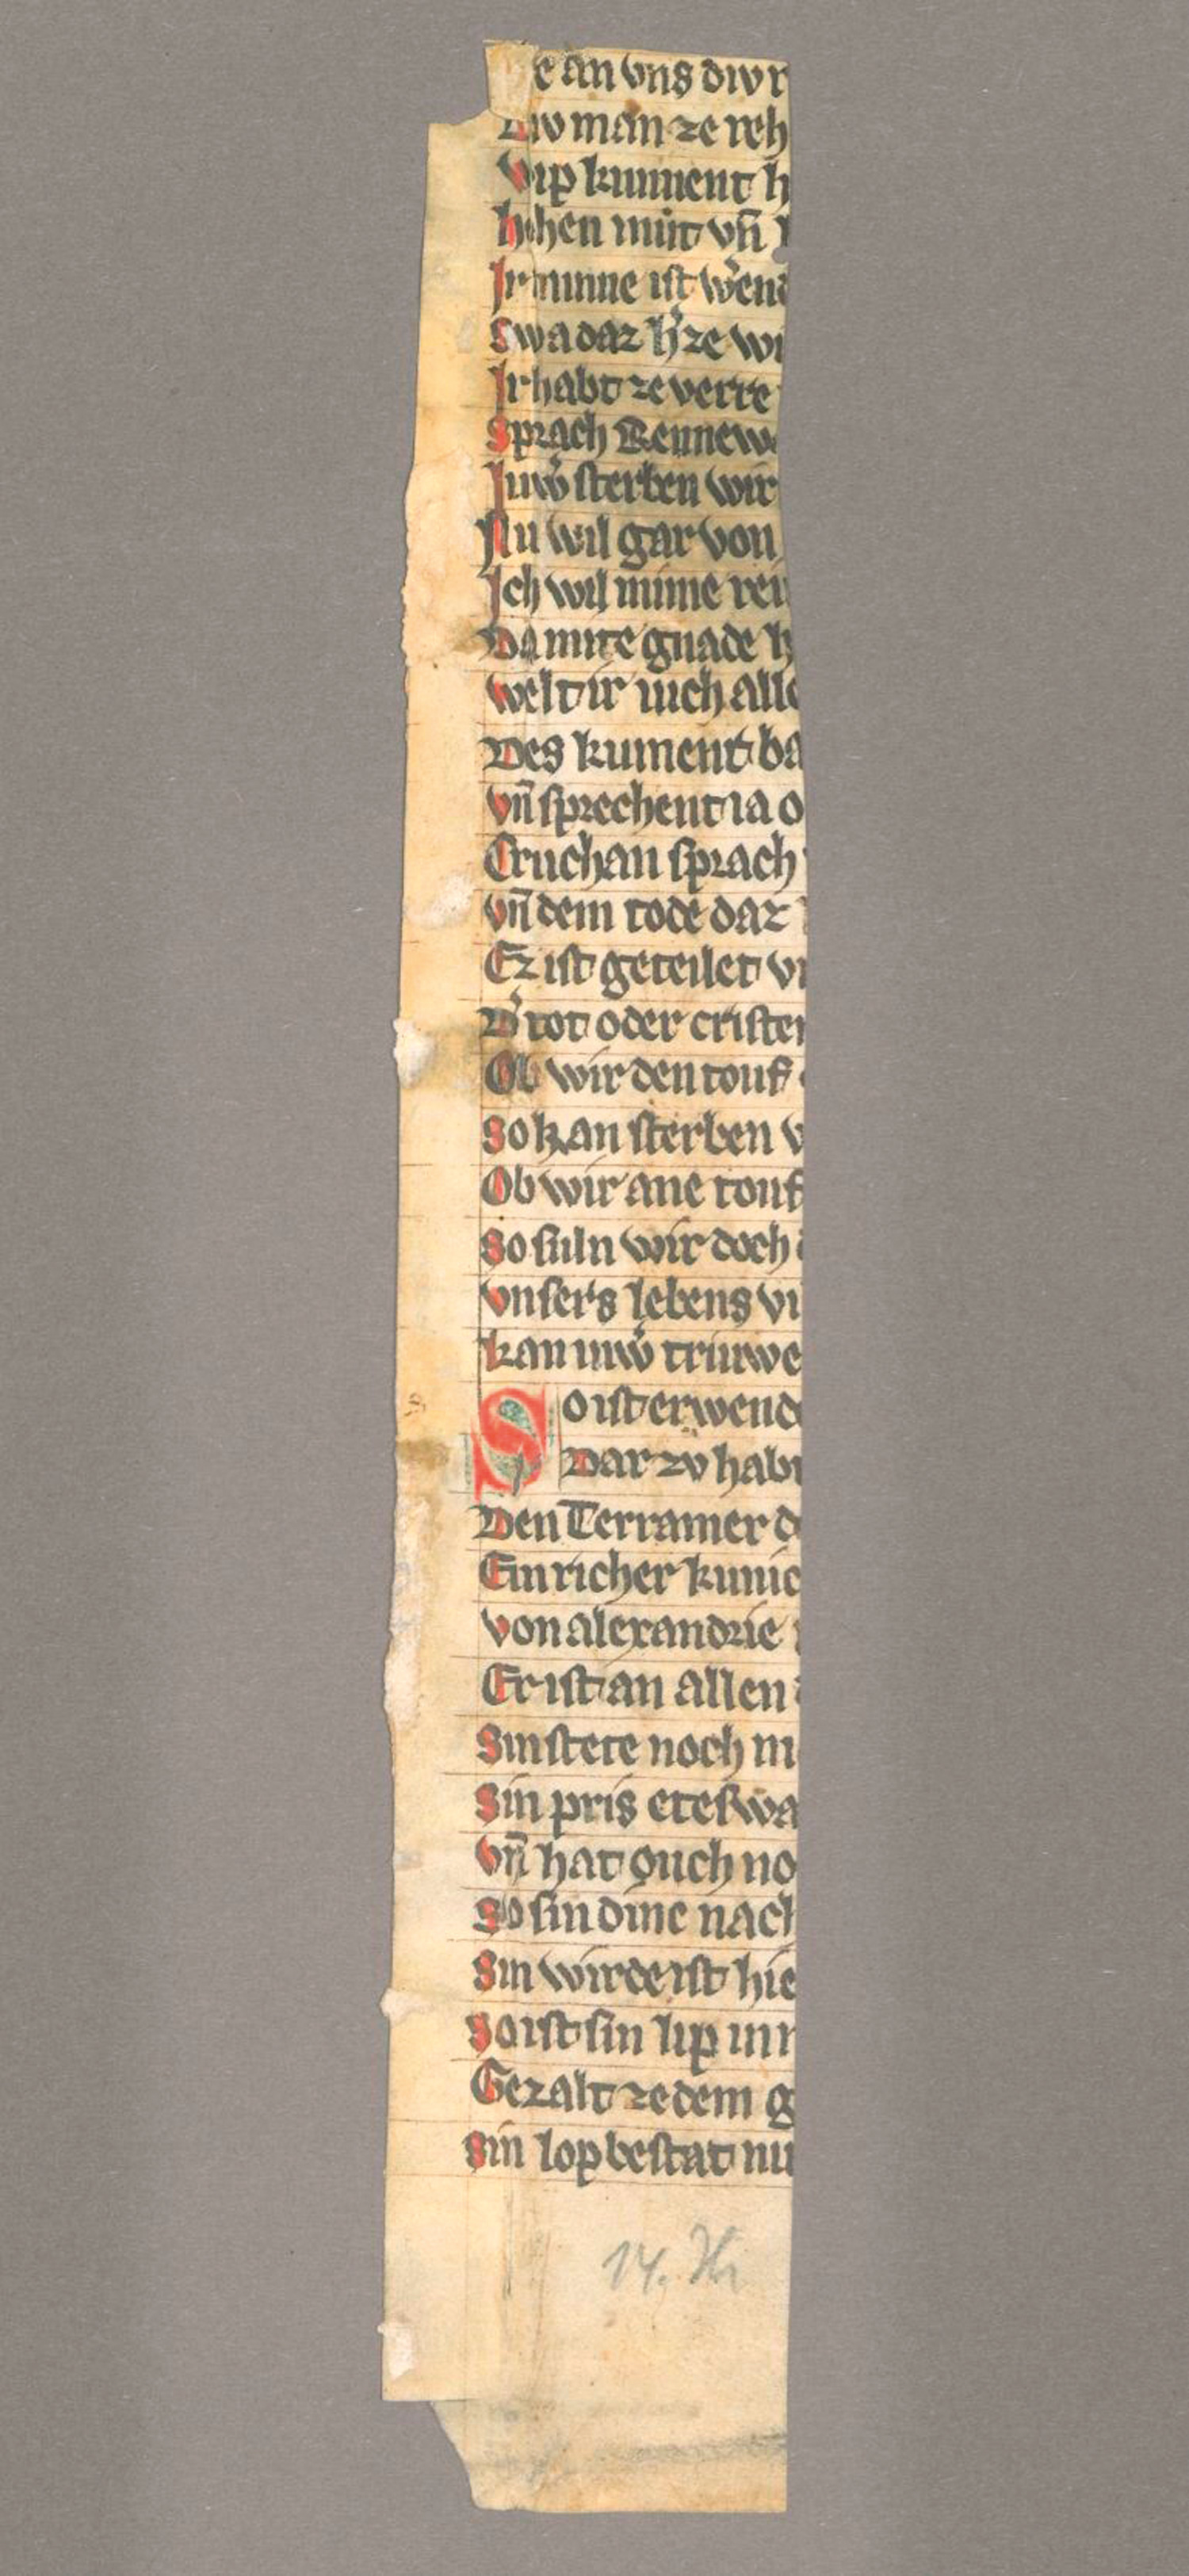 e an vns diw r
Diw man ze reh
Wip kument h
hohen mut vn̄
Ir minne ist w͛end
Swa daz h͛ze wi
Ir habt ze verre
Sprach Rennewa
Iuw͛ sterben wir
Nu wil gar von
Ich wil mime rei
Da mite gnade k
welt ir iuch alle
Des kument ba
vn̄ sprechent ia o
Cruchan sprach
vn̄ dem tode daz
Ez ist geteilet vn
D͛ tot oder cristen
Ob wir den touf
So kan sterben v
Ob wir ane touf
So suln wir doch
vnsers lebens vi
kan iuw͛ triuwe
So ist erwende
Dar zv habi
Den Terramer d
Ein richer kunic
von alexandrie
Er ist an allen
Sin stete noch ni
Sin pris eteswa
vn̄ hat ouch no
So sin dine nach
Sin wirde ist hie
So ist sin lip inr
Gezalt ze dem g
Sin lop bestat nu
14. Jh